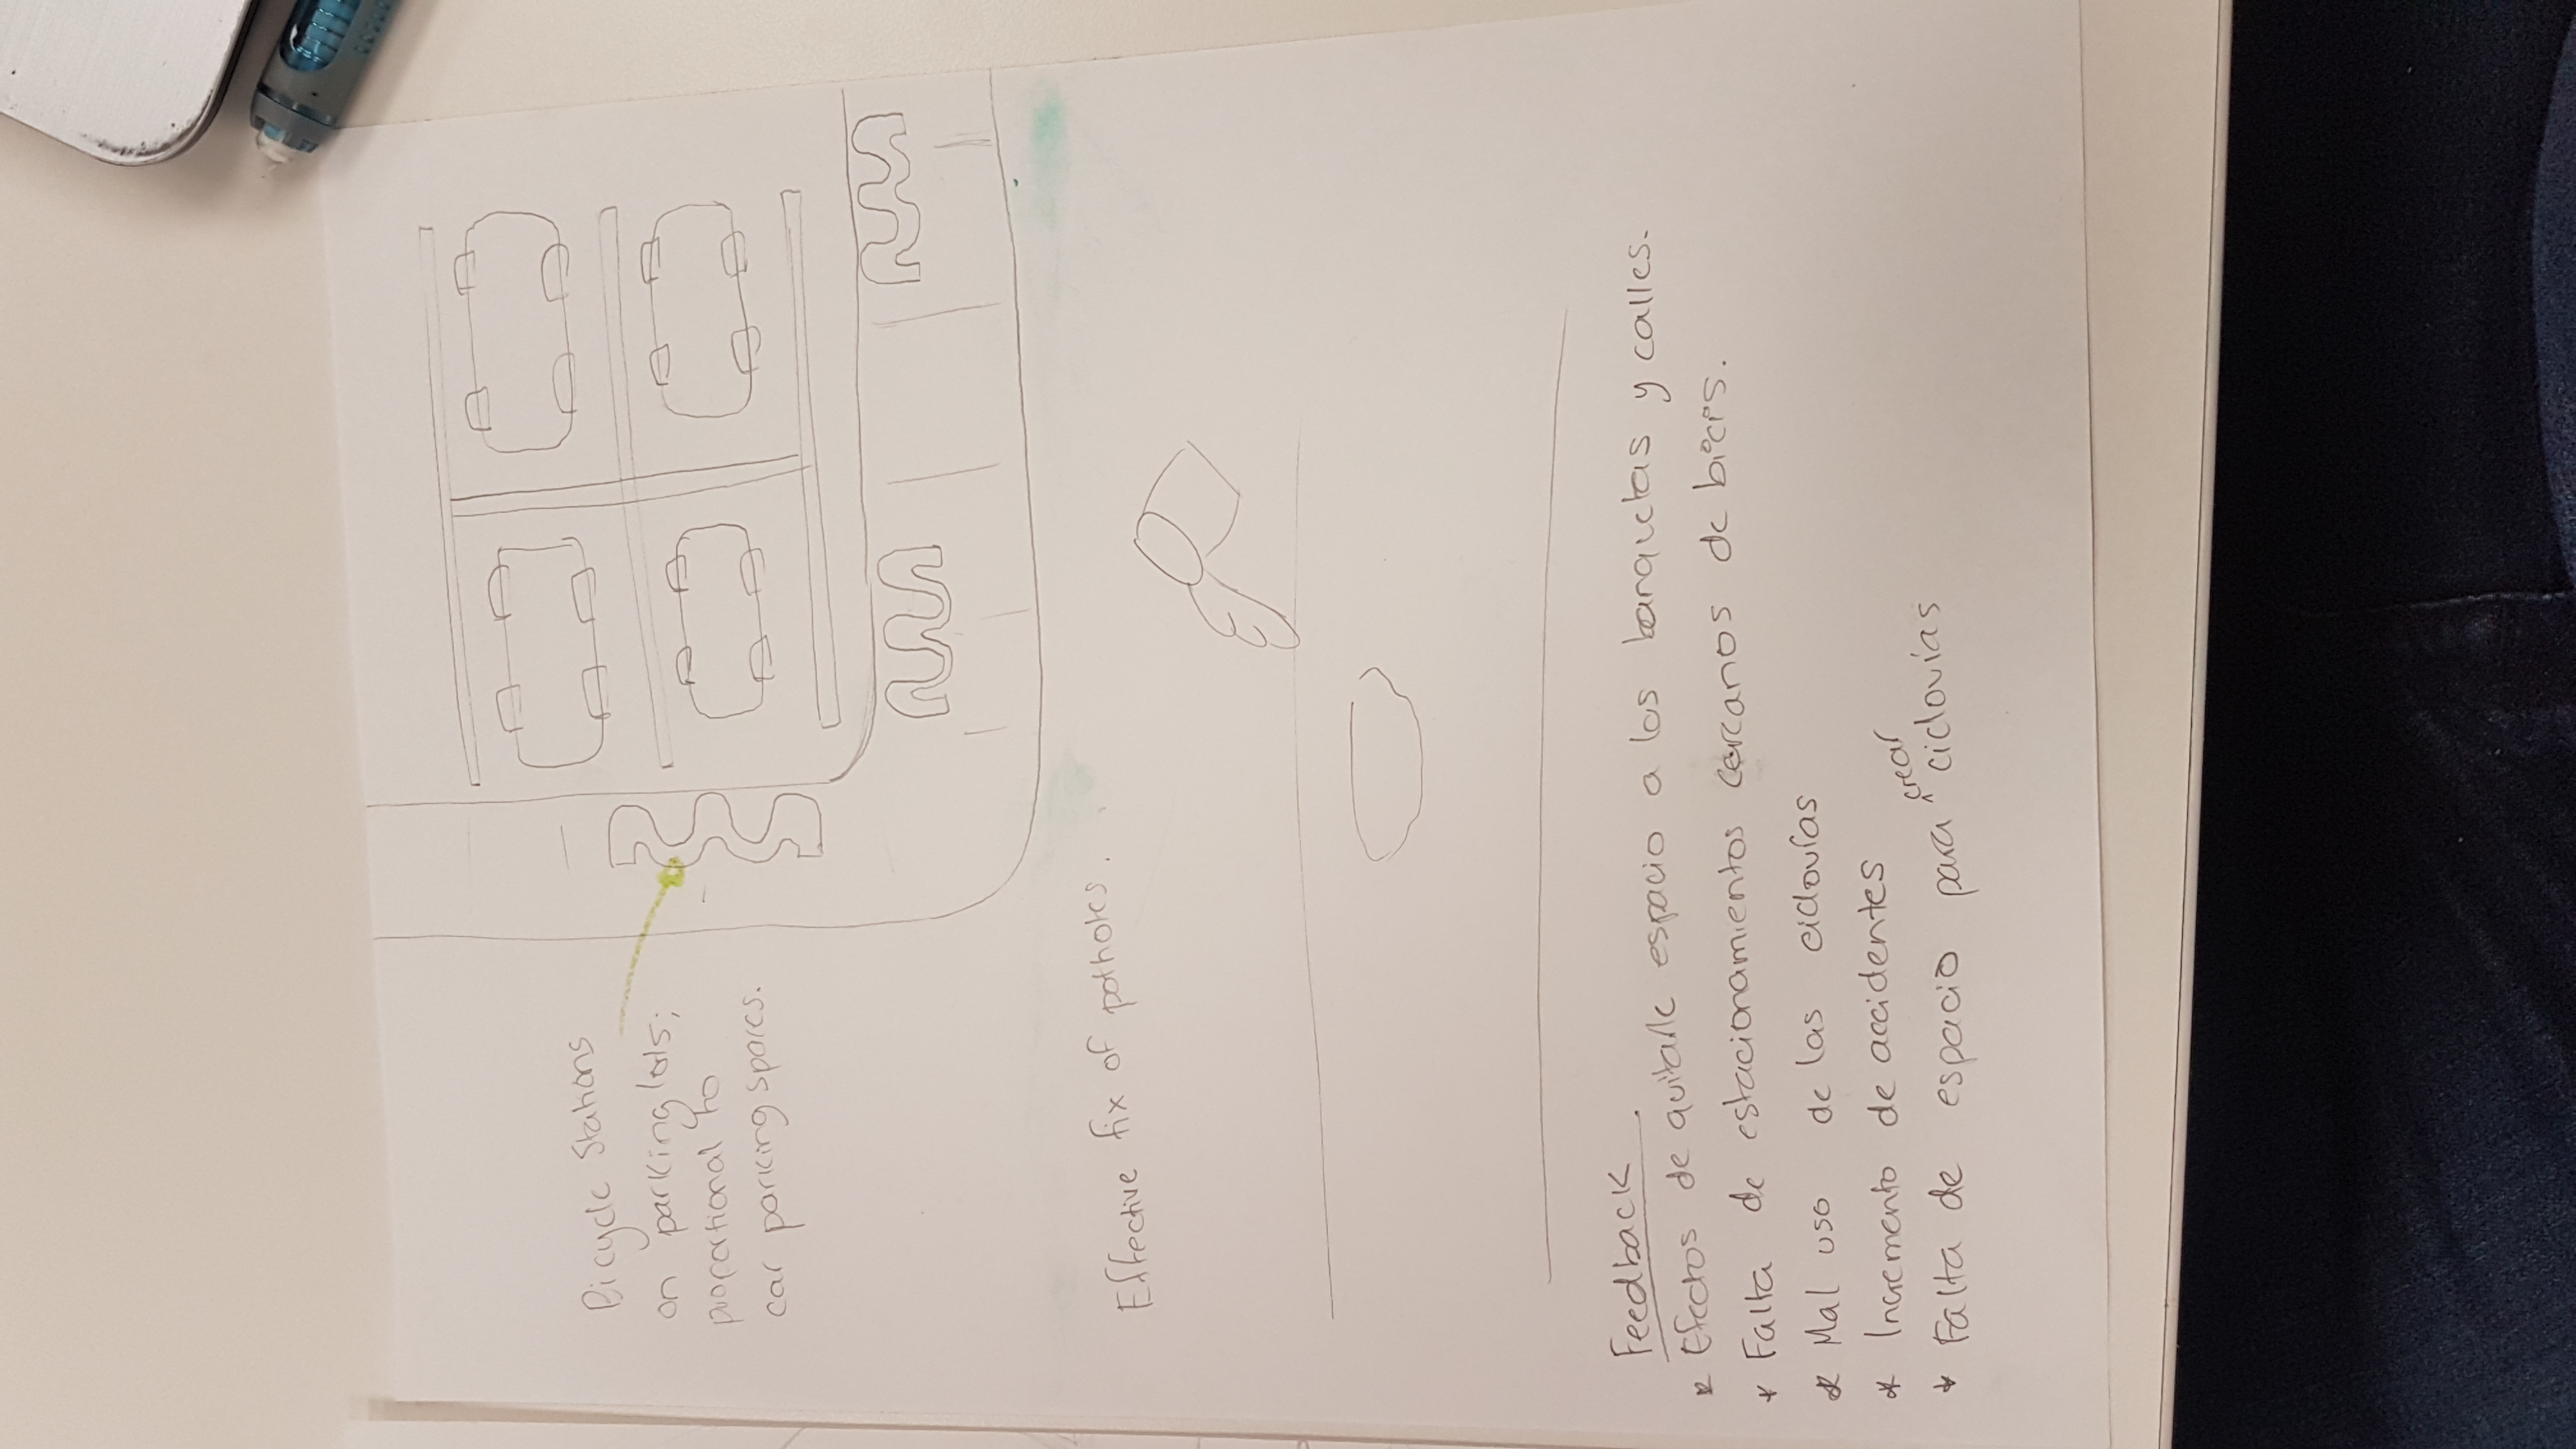 Bicycle Stations
on parking lots;
proportional to
car parking spaces.
Effective fix of potholes.
Feedback.
* Efectos de quitarle espacio a las banquetas y calles.
* Falta de estacionamientos cercanos de bicis.
* Mal uso de las ciclovías
* Incremento de accidentes
* Falta de espacio para crear ciclovías